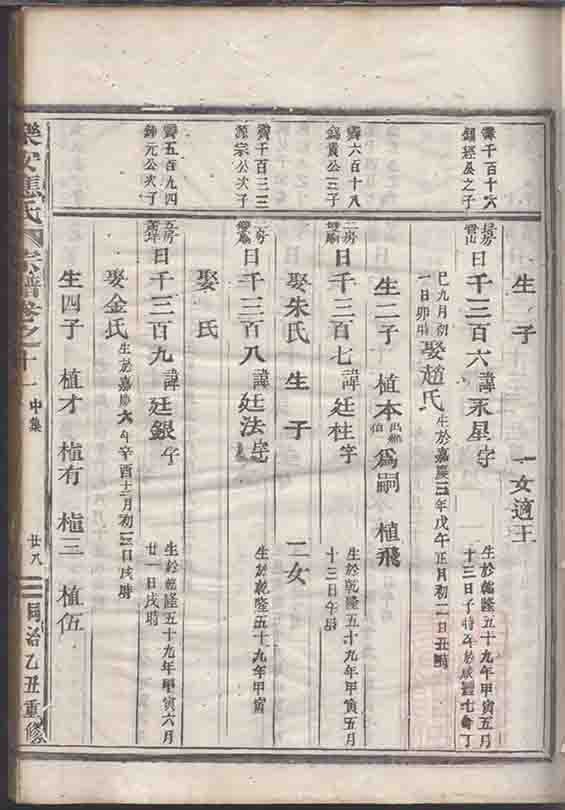 生 子 一女適王
霽千百十六
鍾經公之子
長房
雲山
日千三百六 諱永星 字
生於乾隆五十九年甲寅五月
十三日子時卒於咸豐七命丁
巳九月初
一日卯時
娶趙氏
生於嘉慶三年戊午正月初二日丑時
生二子 植本 為嗣 植飛
霽六百十八
錦貴公三子
二房
日千三百七 諱廷柱 字
生於乾隆五十九年甲寅五月
十三日午時
娶朱氏 生子 二女
霽千百三三
源宗公次子
二房
日千三百八 諱廷法 字
生於乾隆五十九年甲寅
娶 氏
霽五百九四
鍾元公次子
日千三百九 諱廷銀 字
生於乾隆五十九年甲寅六月
廿一日戌時
娶金氏
生於嘉慶六年辛酉十二月初三日戌時
生四子 植才 植有 植三 植伍
樂安應氏宗譜卷之十一 中集 廿八 同治乙丑重修